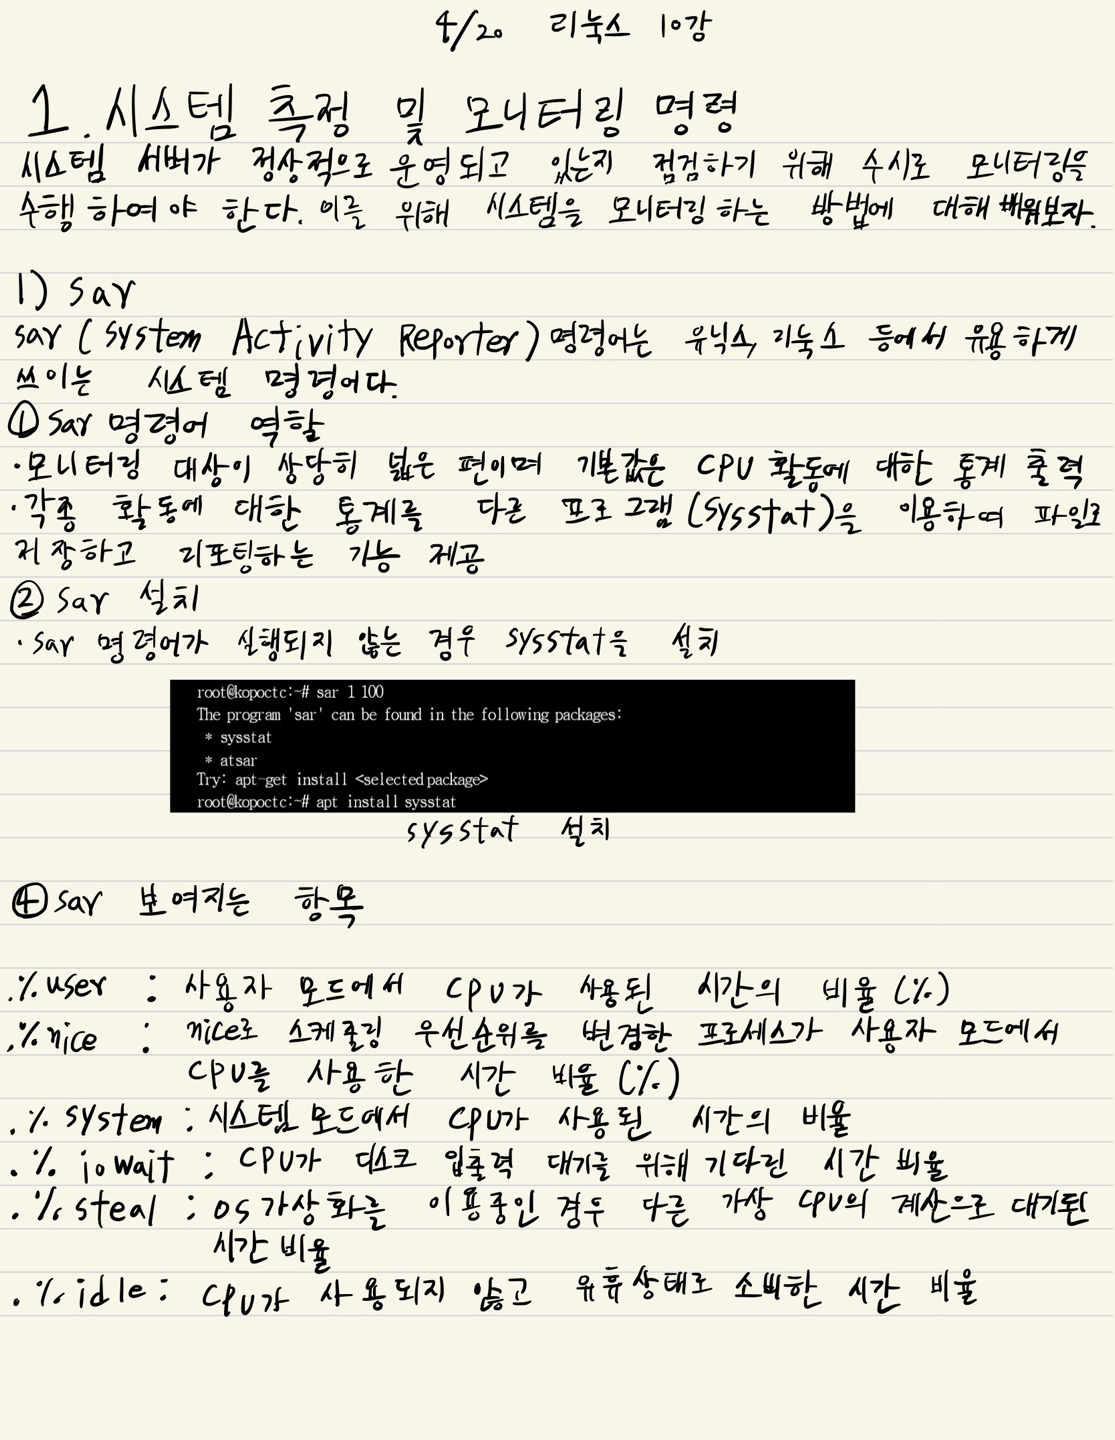 4/20 리눅스 10강
1. 시스템 측정 및 모니터링 명령
시스템 서버가 정상적으로 운영되고 있는지 점검하기 위해 수시로 모니터링을
수행하여야 한다. 이를 위해 시스템을 모니터링 하는 방법에 대해 배워보자.
1) sar
sar (system Activity Reporter) 명령어는 유닉스, 리눅스 등에서 유용하게
쓰이는 시스템 명령어다.
① sar 명령어 역할
·모니터링 대상이 상당히 넓은 편이며 기본값은 CPU 활동에 대한 통계 출력
·각종 활동에 대한 통계를 다른 프로그램(sysstat)을 이용하여 파일로
저장하고 리포팅하는 기능 제공
② sar 설치
·sar 명령어가 실행되지 않는 경우 sysstat을 설치
root@kopoctc:~# sar 1 100
The program 'sar' can be found in the following packages:
* sysstat
* atsar
Try: apt-get install <selected package>
root@kopoctc:~# apt install sysstat
sysstat 설치
④ sar 보여지는 항목
·%user : 사용자 모드에서 CPU가 사용된 시간의 비율(%)
·%nice : nice로 스케줄링 우선순위를 변경한 프로세스가 사용자 모드에서
CPU를 사용한 시간 비율(%)
·% system : 시스템 모드에서 CPU가 사용된 시간의 비율
·% iowait : CPU가 디스크 입출력 대기를 위해 기다린 시간 비율
·% steal : OS 가상화를 이용중인 경우 다른 가상 CPU의 계산으로 대기된
시간 비율
·% idle : CPU가 사용되지 않고 유휴상태로 소비한 시간 비율